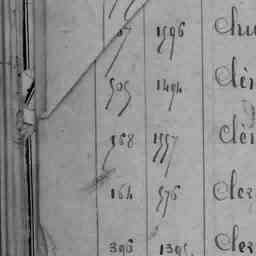 1596 Chu
505 1494 Clé
568 1557 Clé
164 576 Cler
396 1395 Cler